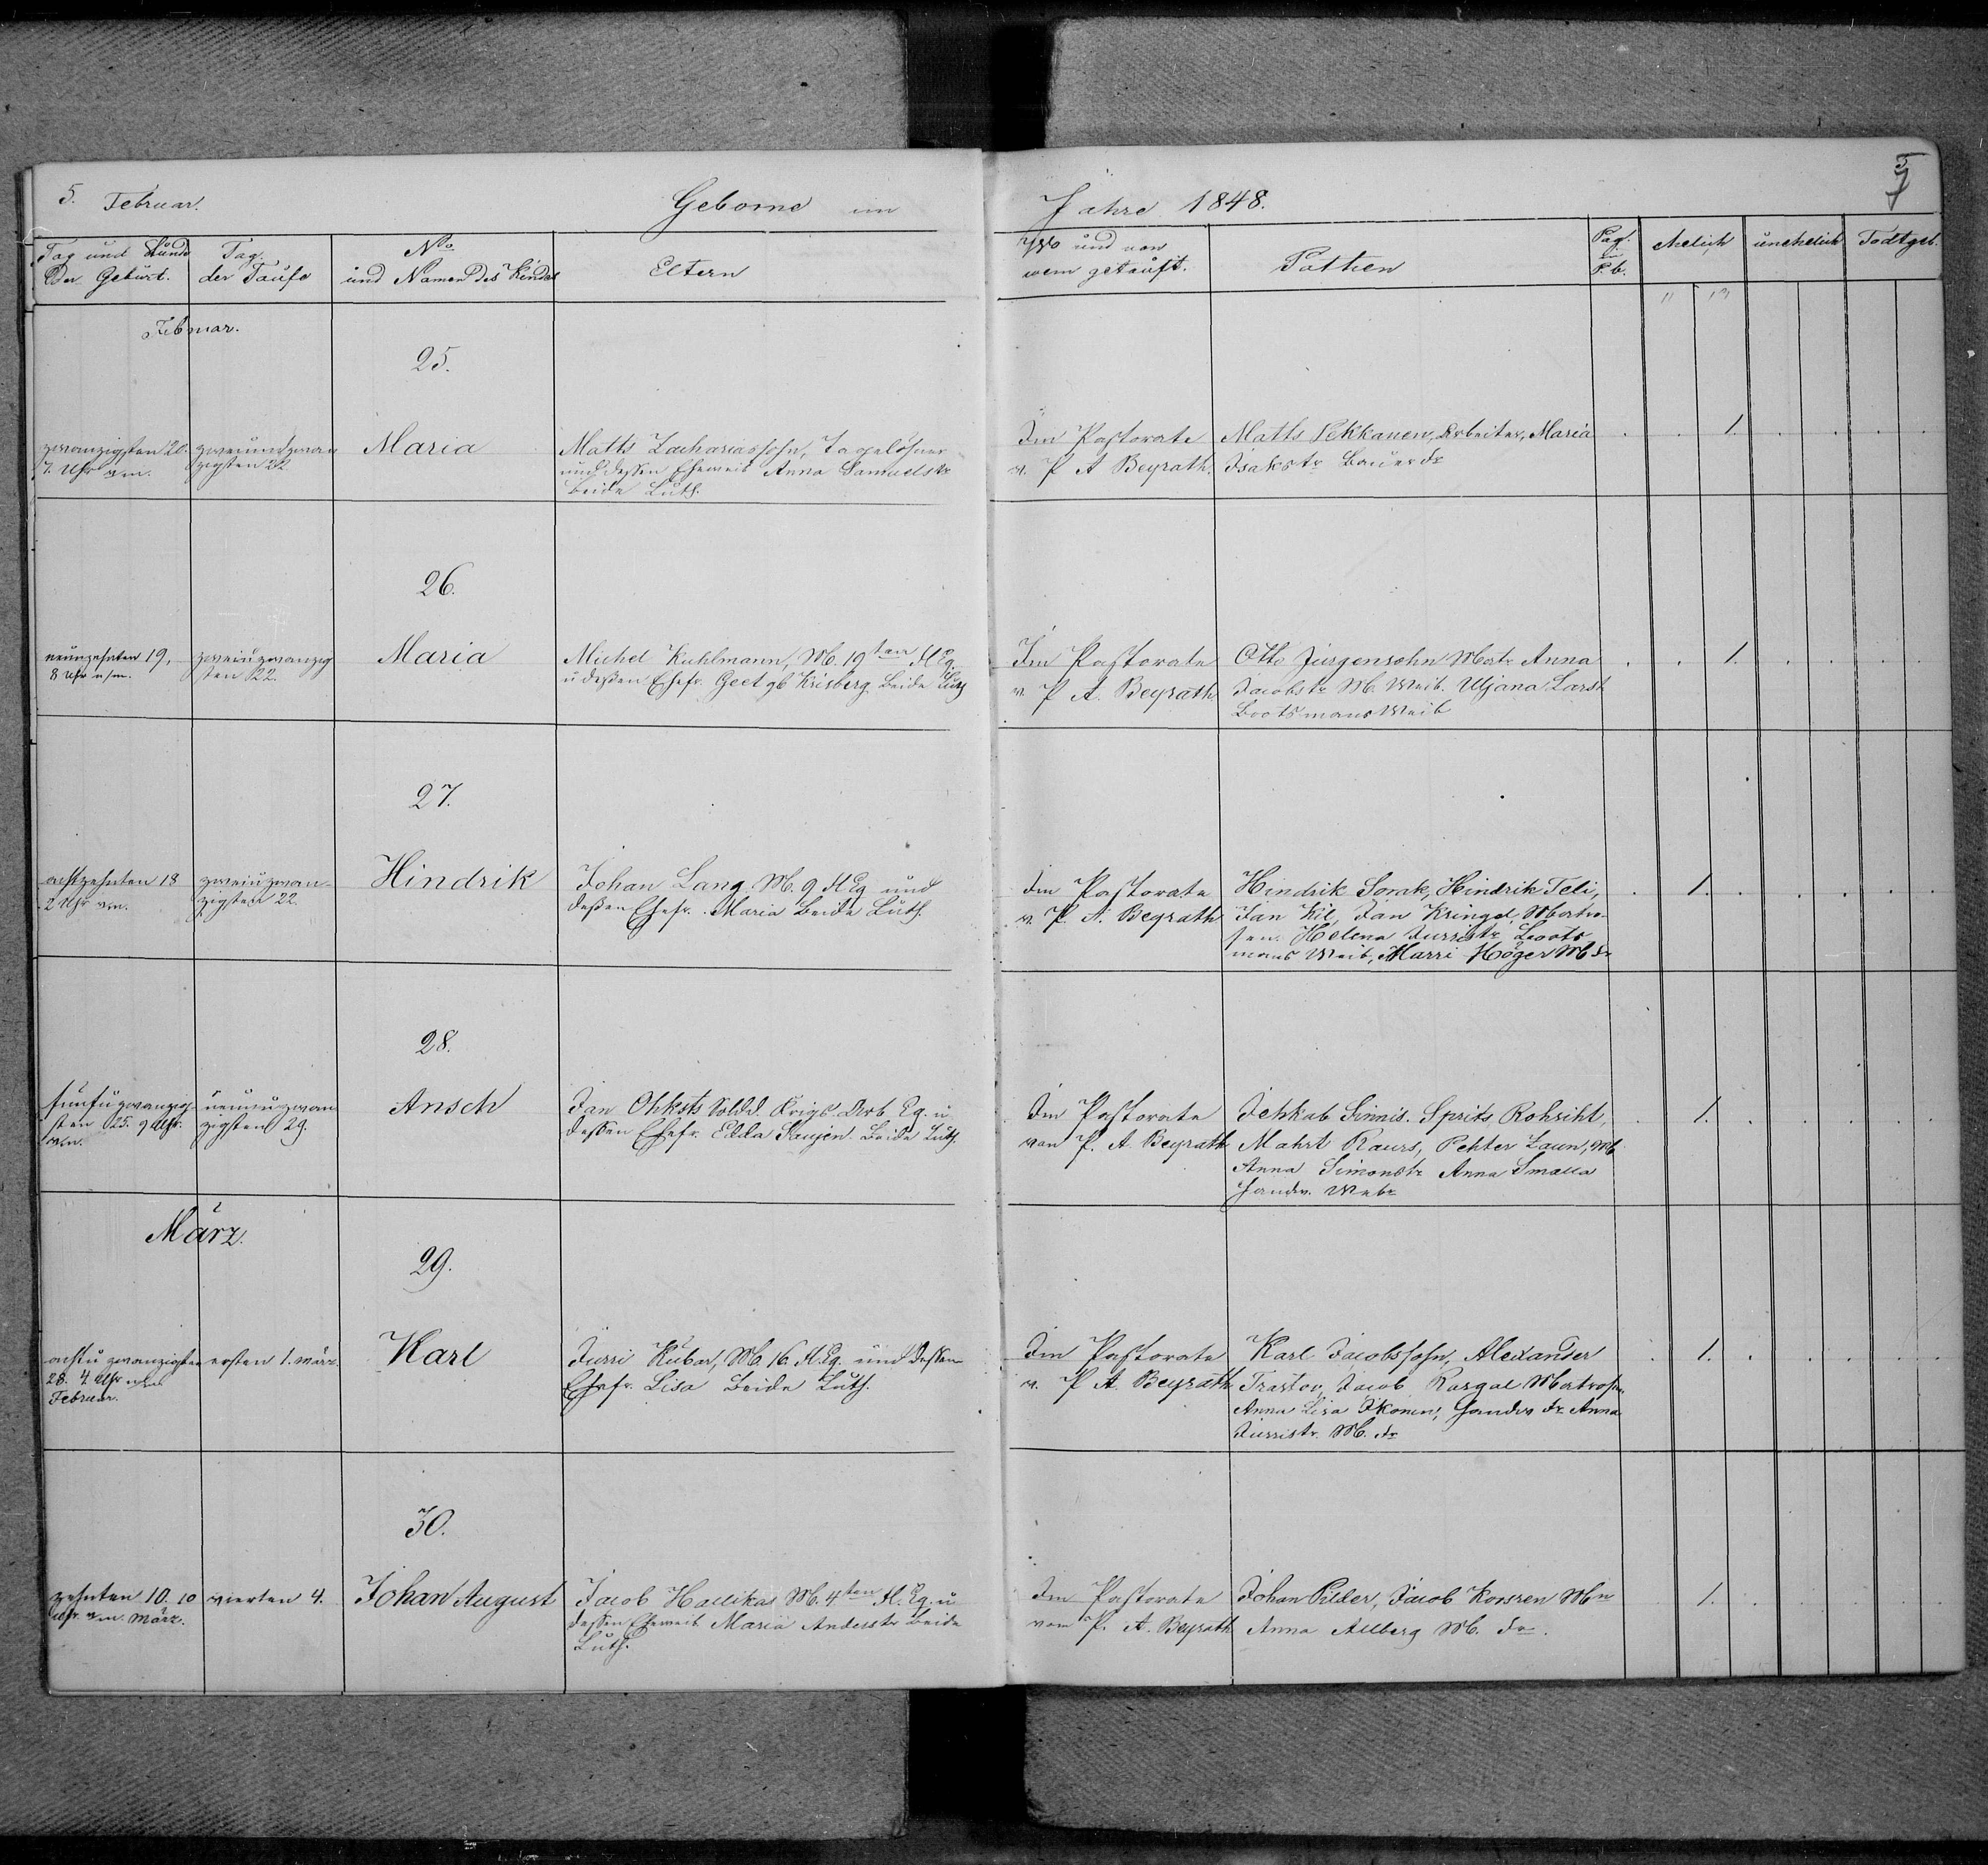 5. Februar.
Geborne im
Jahre 1848.
5
Tag und Stunde
Der Geburt.
Tag
der Taufe
No
und Namen des Kindes
Eltern
Wo und von
wem getauft.
Pathen
Pag.
P. b.
ehelich
unehelich
Todtgeb.
Februar.
25.
zwanzigsten 20.
7 Uhr vm.
zweiundzwan
zigsten 22
Maria
Matts Zachariassohn, Tagelöhner
und dessen Eheweib Anna Samuelstr
beide Luth.
Im Pastorate
v. P A Beyrath.
Matts Pekkanen, Arbeiter, Maria
Isakstr Bauer fr
1.
26.
neunzehnten 19,
8 Uhr n/m.
zweiuzwanzig
sten 22.
Maria
Michel Kuhlmann, M. 19ten Fl Eq.
u deßen Ehefr. Geet gb Krisberg. beide Luth
Im Pastorate
v. P A. Beyrath
Otto Jürgensohn Matr. Anna
Jacobstr M. Weib. Uljana Larst
Bootsmans Weib
1.
27.
achtzehnten 18
2 Uhr vm.
zweiuzwan-
zigsten 22.
Hindrik
Johan Lang M. 9 Fl Eq und
deßen Ehefr. Maria beide Luth.
Im Pastorate
v. P. A. Beyrath
Hindrik Sorak, Hindrik Teli,
Jan Kil, Jan Kringel, Matro-
sen. Helena Jurristr Boots
mans Weib, Marri Höger M fr
1.
28.
fünfuzwanzig-
sten 25. 9 Uhr.
vm.
neunuzwan
zigsten 29.
Ansch
Jan Ohksts Sold d. Krigs. Arb Eq. u
dessen Ehefr. Edda Saujen. beide Luth.
Im Pastorate
von P. A. Beyrath
Jehkab Sinnis. Sprits Rohsiht,
Mahrt Kaurs, Pehter Laun, M
Anna Simonstr Anna Smalla
1.
März.
29.
achtuzwanzigsten
28. 4 Uhr
Februar.
ersten 1. März.
Karl
Jurri Kubar, M 16 Fl. Eq. und dessen
Ehefr. Lisa beide Luth.
Im Pastorate
v. P A. Beyrath
Karl Jacobssohn, Alexander
Trastov, Jacob Kasgal Matrosen
Anna Lisa Ikonen, fr Anna
Jurristr. M. fr
1.
30.
zehnten 10. 10
Uhr vm. März.
vierten 4.
Johan August
Jacob Hallikas M. 4ten Fl. Eq. u
dessen Eheweib Maria Anderstr beide
Luth.
Im Pastorate
vom P. A. Beyrath
Johan Pilder, Jacob Korsren Mn
Anna Allberg M. fr.
1.